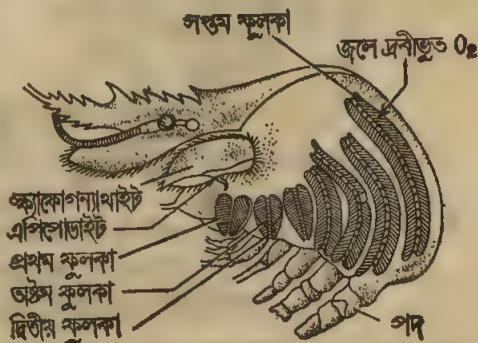 সপ্তম ফুলকা
জলে দ্রবীভূত O₂
স্ক্যাফোগন্যাথাইট
এপিপোডাইট
প্রথম ফুলকা
অষ্টম ফুলকা
দ্বিতীয় ফুলকা
পদ